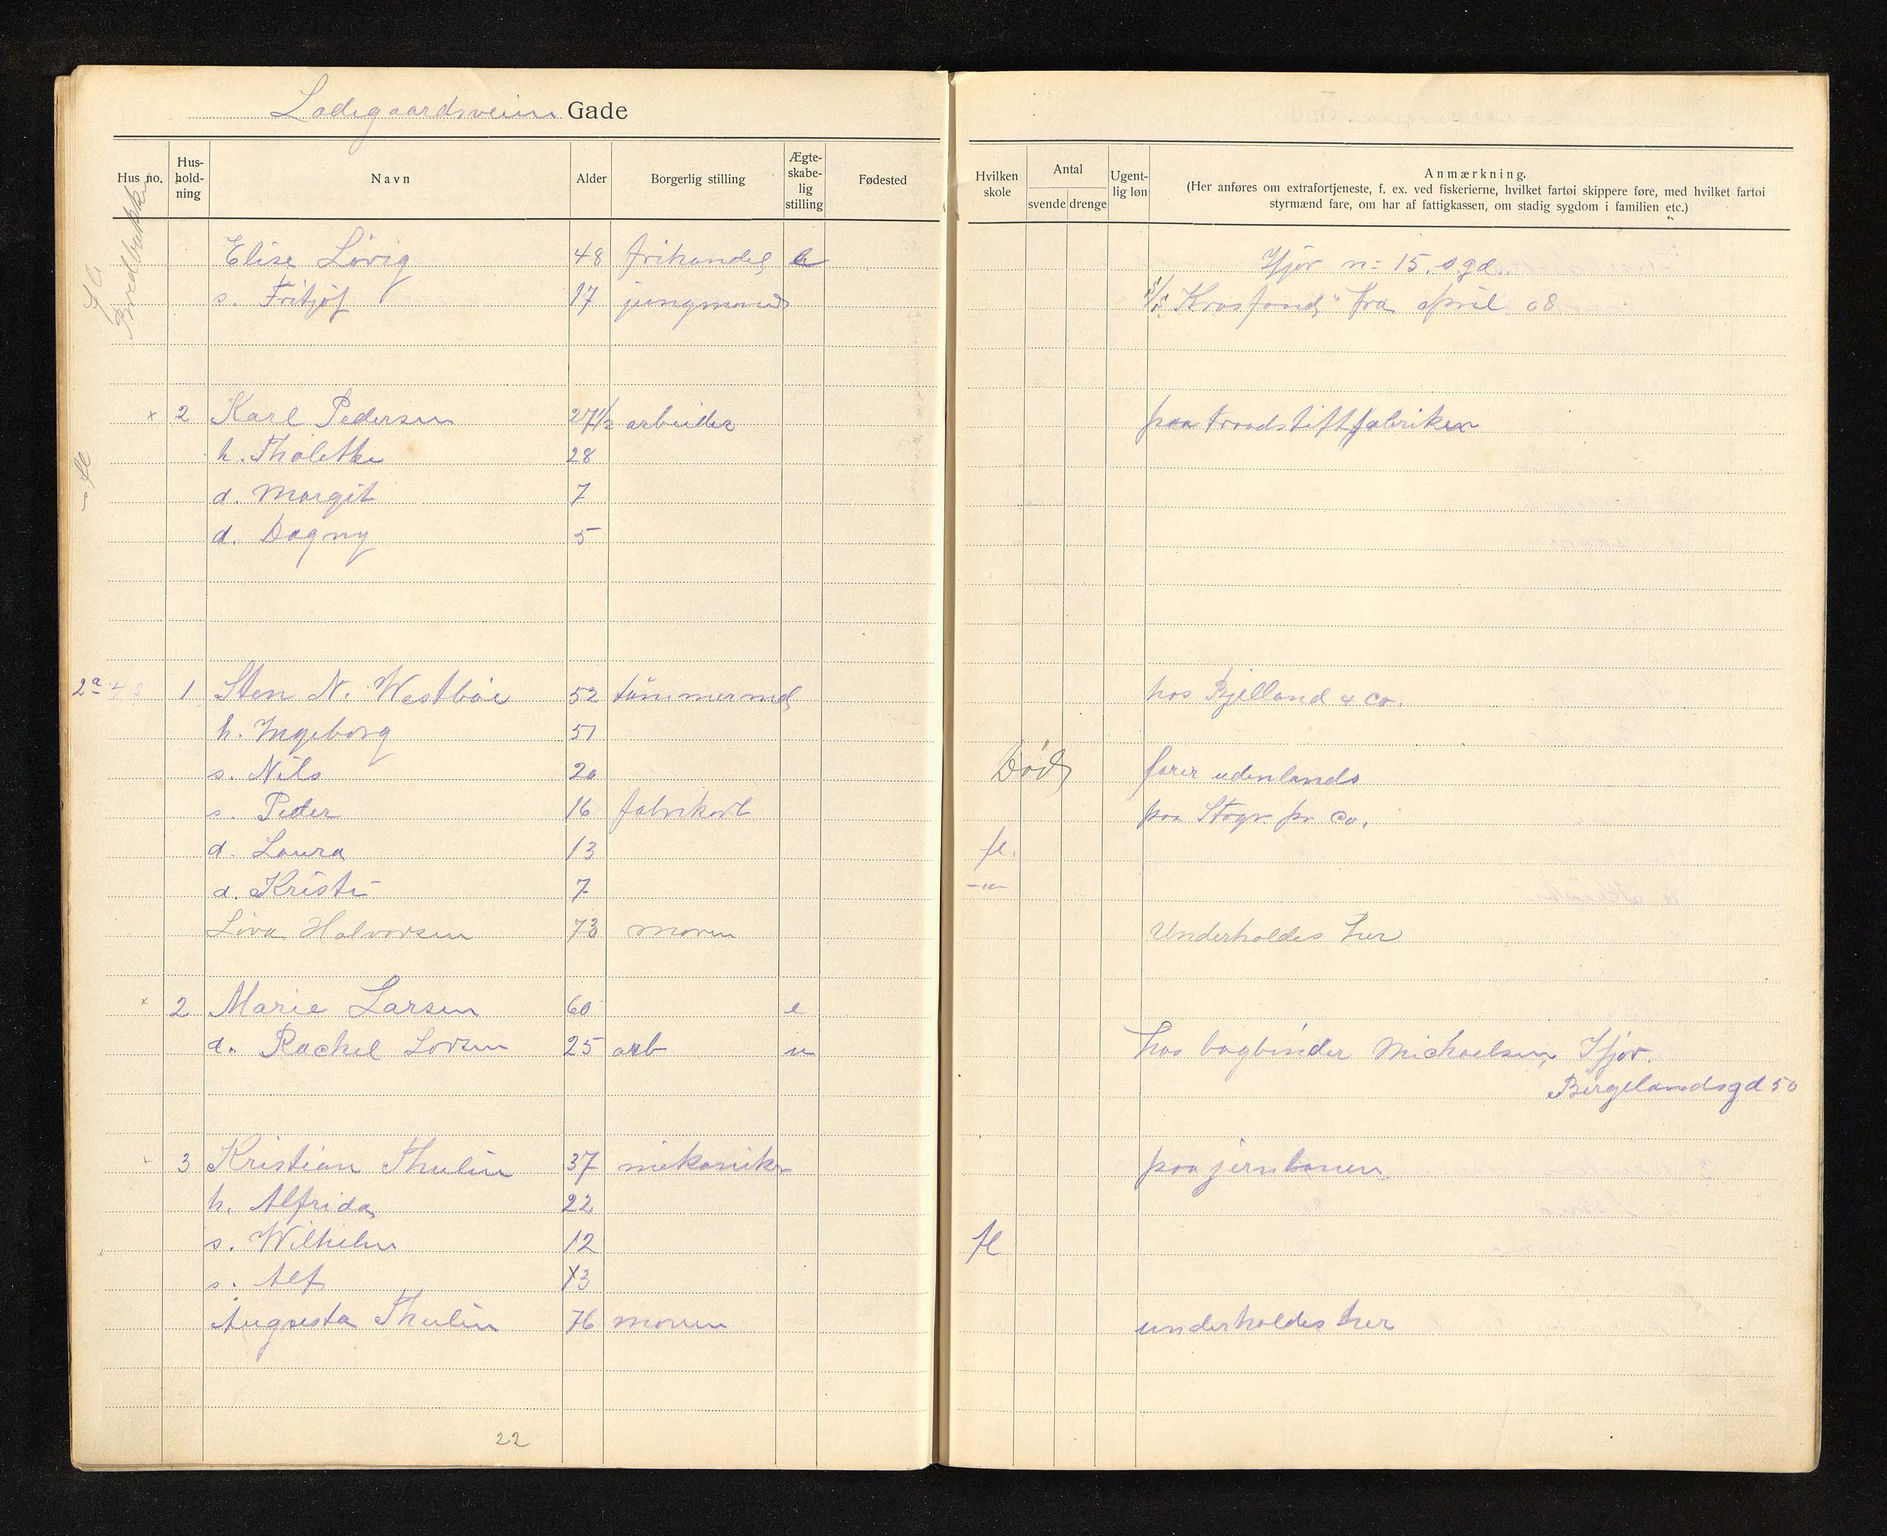 Ladegaardsveien Gade
Hus no. Hus-hold-ning Navn Alder Borgerlig stilling Ægte-skabe-lig stilling Fødested Hvilken skole Antal svende drenge Ugent-lig løn Anmærkning.
(Her anføres om extrafortjeneste, f. ex. ved fiskerierne, hvilket fartøi skippere føre, med hvilket fartøi
styrmænd fare, om har af fattigkassen, om stadig sygdom i familien etc.)
Elise Lövig 48 frihandel e Ifjor n: 15. s gd.
s. Fritjof 17 jungmand S/S. fra april 08
x 2 Karl Pedersen 27 1/2 arbeider paa traadstiftfabriken
h. Tholette 28
d. Margit 7
d. Dagny 5
2a 1 Sten N. Westbøe 52 tømmermd hos Bjelland & co.
h. Ingeborg 51
s. Nils 20 Død farer udenlands
s. Peder 16 fabrikarb paa Stavgr. pr. co.
d. Laura 13 fl.
d. Kristi 7 -"-
Liva Halvorsen 73 moren Underholdes her
x 2 Marie Larsen 60 e
d. Rachel Larsen 25 arb u hos bogbinder Michaelsen, Ifjor.
Bergelandsgd 50
3 Kristian Thulin 37 mekaniker paa jernbanen
h. Alfrida 22
s. Wilhelm 12 fl
s. Alf 13
Augusta Thulin 76 moren underholdes her
22